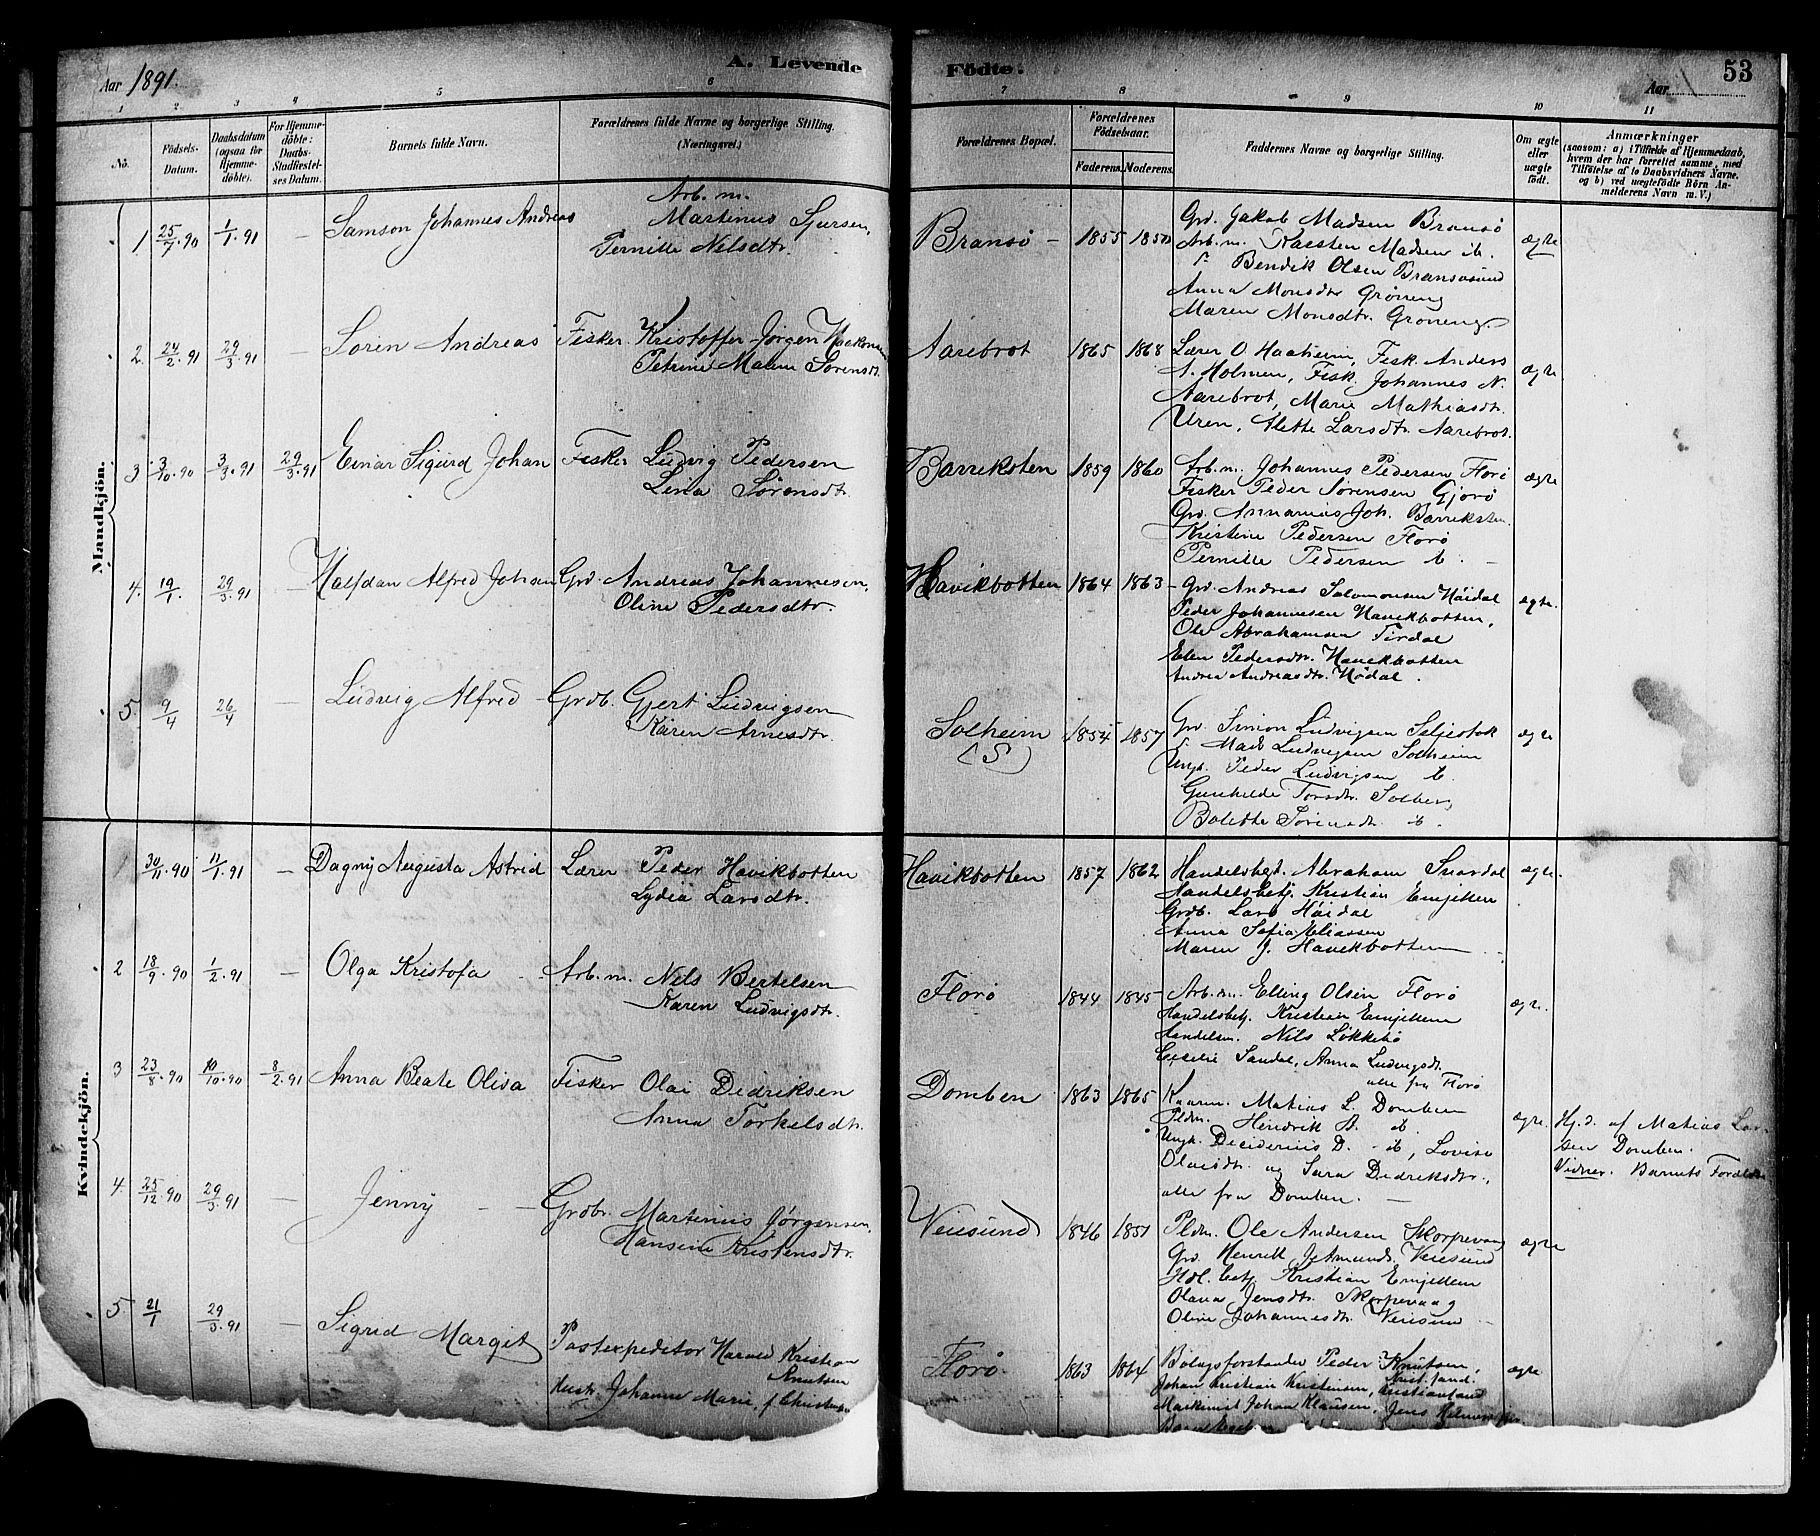 Aar 1891.
A. Levende Födte.
53
Aar
1 2 3 4 5 6 7 8 9 10 11
No.
Födsels-Datum.
Daabsdatum (ogsaa for Hjemme-döbte).
For Hjemme-döbte: Daabs-Stadfæstel-ses Datum.
Barnets fulde Navn.
Forældrenes fulde Navne og borgerlige Stilling. (Næringsvei.)
Forældrenes Bopæl.
Forældrenes Födselsaar.
Faderens. Moderens.
Faddernes Navne og borgerlige Stilling.
Om ægte eller uægte födt.
Anmærkninger
(saasom: a) i Tilfælde af Hjemmedaab,
hvem der har forrettet samme, med
Tilföielse af to Daabsvidners Navne.
og b) ved uægtefödte Börn An-
melderens Navn m. V.)
Mandkjön.
1 25/7.90 1/1.91 — Samson Johannes Andreas
Arb. m.
Martinus Sjursen,
Pernille Nelsdtr.
Bransø – 1855 1850
Grd. Jakob Madsen Bransø
Arb. m. Karsten Madsen ib.
" Bendik Olsen Bransøsund
Anna Monsdtr Grøneng
Maren Monsdtr. Grøneng.
ægte
2. 24/2.91 29/3.91 — Soren Andreas
Fisker Kristoffer Jørgen Haakonsen
Petrine Malene Sorensdt.
Aarebrot 1865 1868
Lærer O. Haaheim, Fisk. Anders
N. Holmen, Fisk. Johannes N.
Aarebrot, Marie Mathiasdtr.
Uren, Alette Larsdtr. Aarebrot.
ægte
3 3/10.90 3/3.91 29/3.91 Einar Sigurd Johan
Fisker Ludvig Pedersen
Lena Sørensdtr.
Barreksten 1859 1860
Arb. m. Johannes Pedersen Florø
Fisker Peder Sørensen Gjorø
Grd. Annanias Joh. Barreksten
Kristine Pedersen Florø
Pernille Pedersen ib. –
ægte
4. 19/1. 29/3.91 — Halfdan Alfred Johan
Grd. Andreas Johannesen,
Oline Pedersdtr.
Havikbotten 1864 1863
Grd. Andreas Salomonsen Høidal
Peder Johannesen Havikbotten,
Ole Abrahamsen Tirdal
Elen Pedersdtr. Havikbotten
Andrea Andreasdtr. Hødal.
ægte.
5. 9/4 26/4 — Ludvig Alfred
Grdb. Gjert Ludvigsen
Karen Arnesdtr.
Solheim
(S)
1854 1857
Grd. Simon Ludvigsen Seljestok
" Mads Ludvigsen Solheim
Ungk. Peder Ludvigsen ib.
Gunhilde Torsdtr. Solberg
Bolette Sørensdtr. ib.
ægte
Kvindekjön.
1 30/11.90 11/1.91 — Dagny Augusta Astrid
Lærer Peder Havikbotten
Lydia Larsdtr.
Havikbotten 1857 1862
Handelsbetj. Abraham Snardal
Handelsbetj. Kristian Emjellen
Grdb. Lars Høidal
Anna Sofia Eliassen
Maren J. Havikbotten
ægte.
2 18/9.90 1/2.91 — Olga Kristofa
Arb. m. Nils Bertelsen
Karen Ludvigsdtr.
Florø 1844 1845
Arb. m. Elling Olsen Florø
Handelsbetj. Kristian Emjellem
Handelsm. Nils Løkkebø
Cecelie Sandal, Anna Ludvigsdt.
alle fra Florø
ægte.
3 23/8.90 10/10.90 8/2.91 Anna Beate Olisa
Fisker Olai Didriksen
Anna Torkelsdtr.
Domben 1863 1865
Kaarm. Matias L. Domben
Pldm. Hendrik A. ib.
Ungk. Desiderius D. ib, Lovise
Olaisdtr. og Sara Didriksdtr.,
alle fra Domben. —
ægte.
Hj.d. af Matias Lar-
sen Domben.
Vidner. Barnets Forældre
4. 25/12.90 29/3.91 — Jenny
Grdbr. Martinus Jørgensen,
Hansine Kristensdtr.
Veiesund 1846 1851
Pldm. Ole Andersen Skorpevaag
Grd. Henrik J. Amunds. Veiesund
Hdl. betj. Kristian Emjellem
Olava Jensdtr. Skorpevaag
Oline Johannesdtr. Veiesund
ægte
5. 21/1 29/3.91 — Sigrid Margit
Postexpeditor Harald Kristian
Knutsen
Hustr. Johanne Marie, f. Christensen
Florø. 1863 1864
Bolagsforstander Peder Knutsen,
Krist.sand.
Johan Kristian Kristensen, Kristiansand
Maskinist Johan Klausen, Jens
ægte